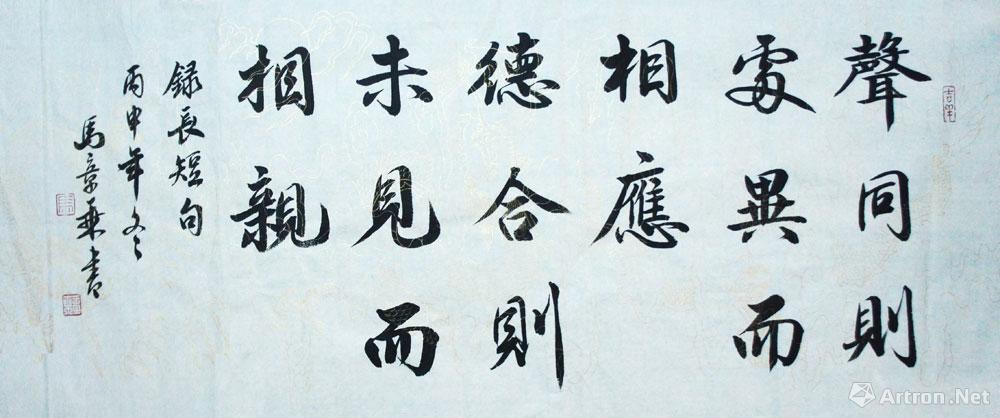 聲同則
處異而
相應
德合則
未見而
相親
録長短句
丙申年冬
馬章乘書
Artron.Net